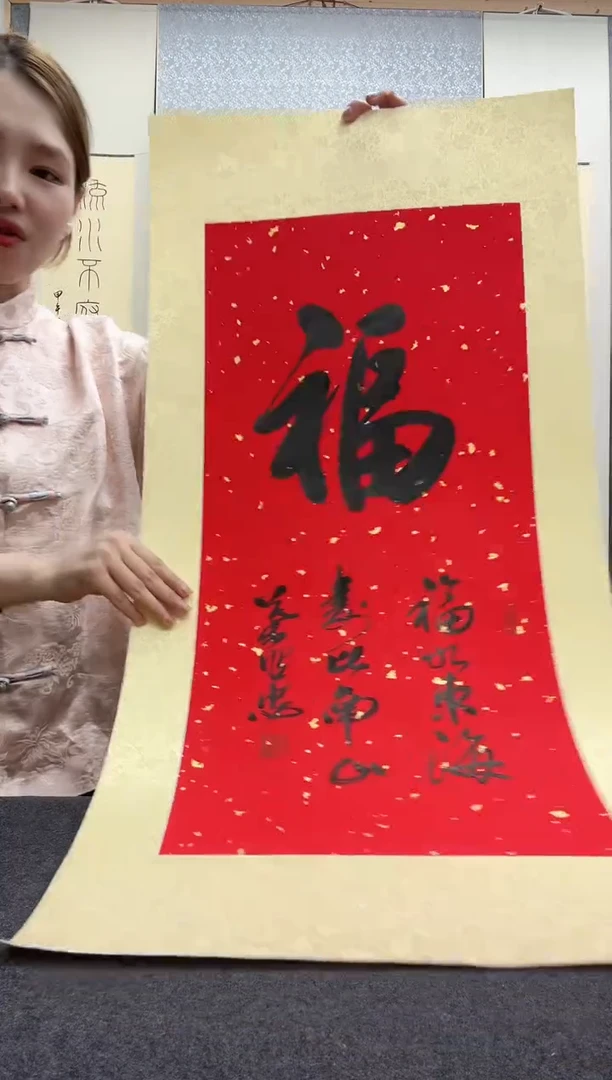 福
福如东海
寿比南山
流水不腐